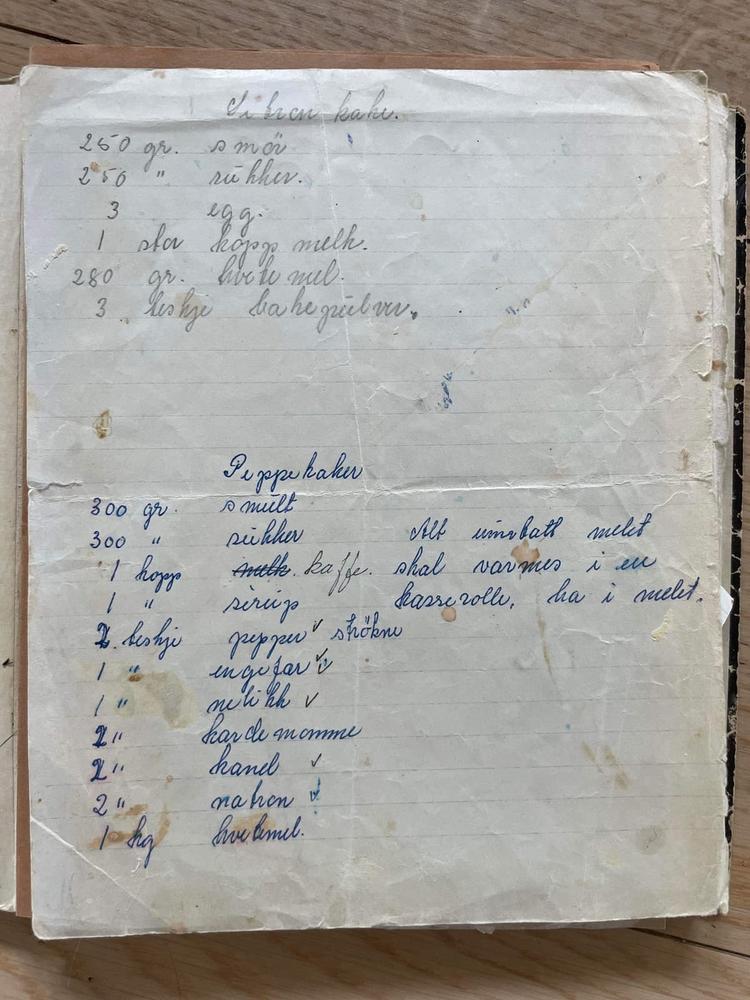 Sitron kake.
250 gr. smör
250 " sŭkker.
3 egg.
1 stor kopp melk.
280 gr. hvetemel.
3 teskje bakepŭlver.
Peppekaker
300 gr. smŭlt
300 " sŭkker
1 kopp melk. kaffe.
1 " sirŭp
2. teskje pepper strökne
1 " engefær
1 " nelikk
2 " kardemomme
2 " kanel
2 " natron
1 kg hvetemel.
Alt ŭnntatt melet
skal varmes i en
kasserolle, ha i melet.